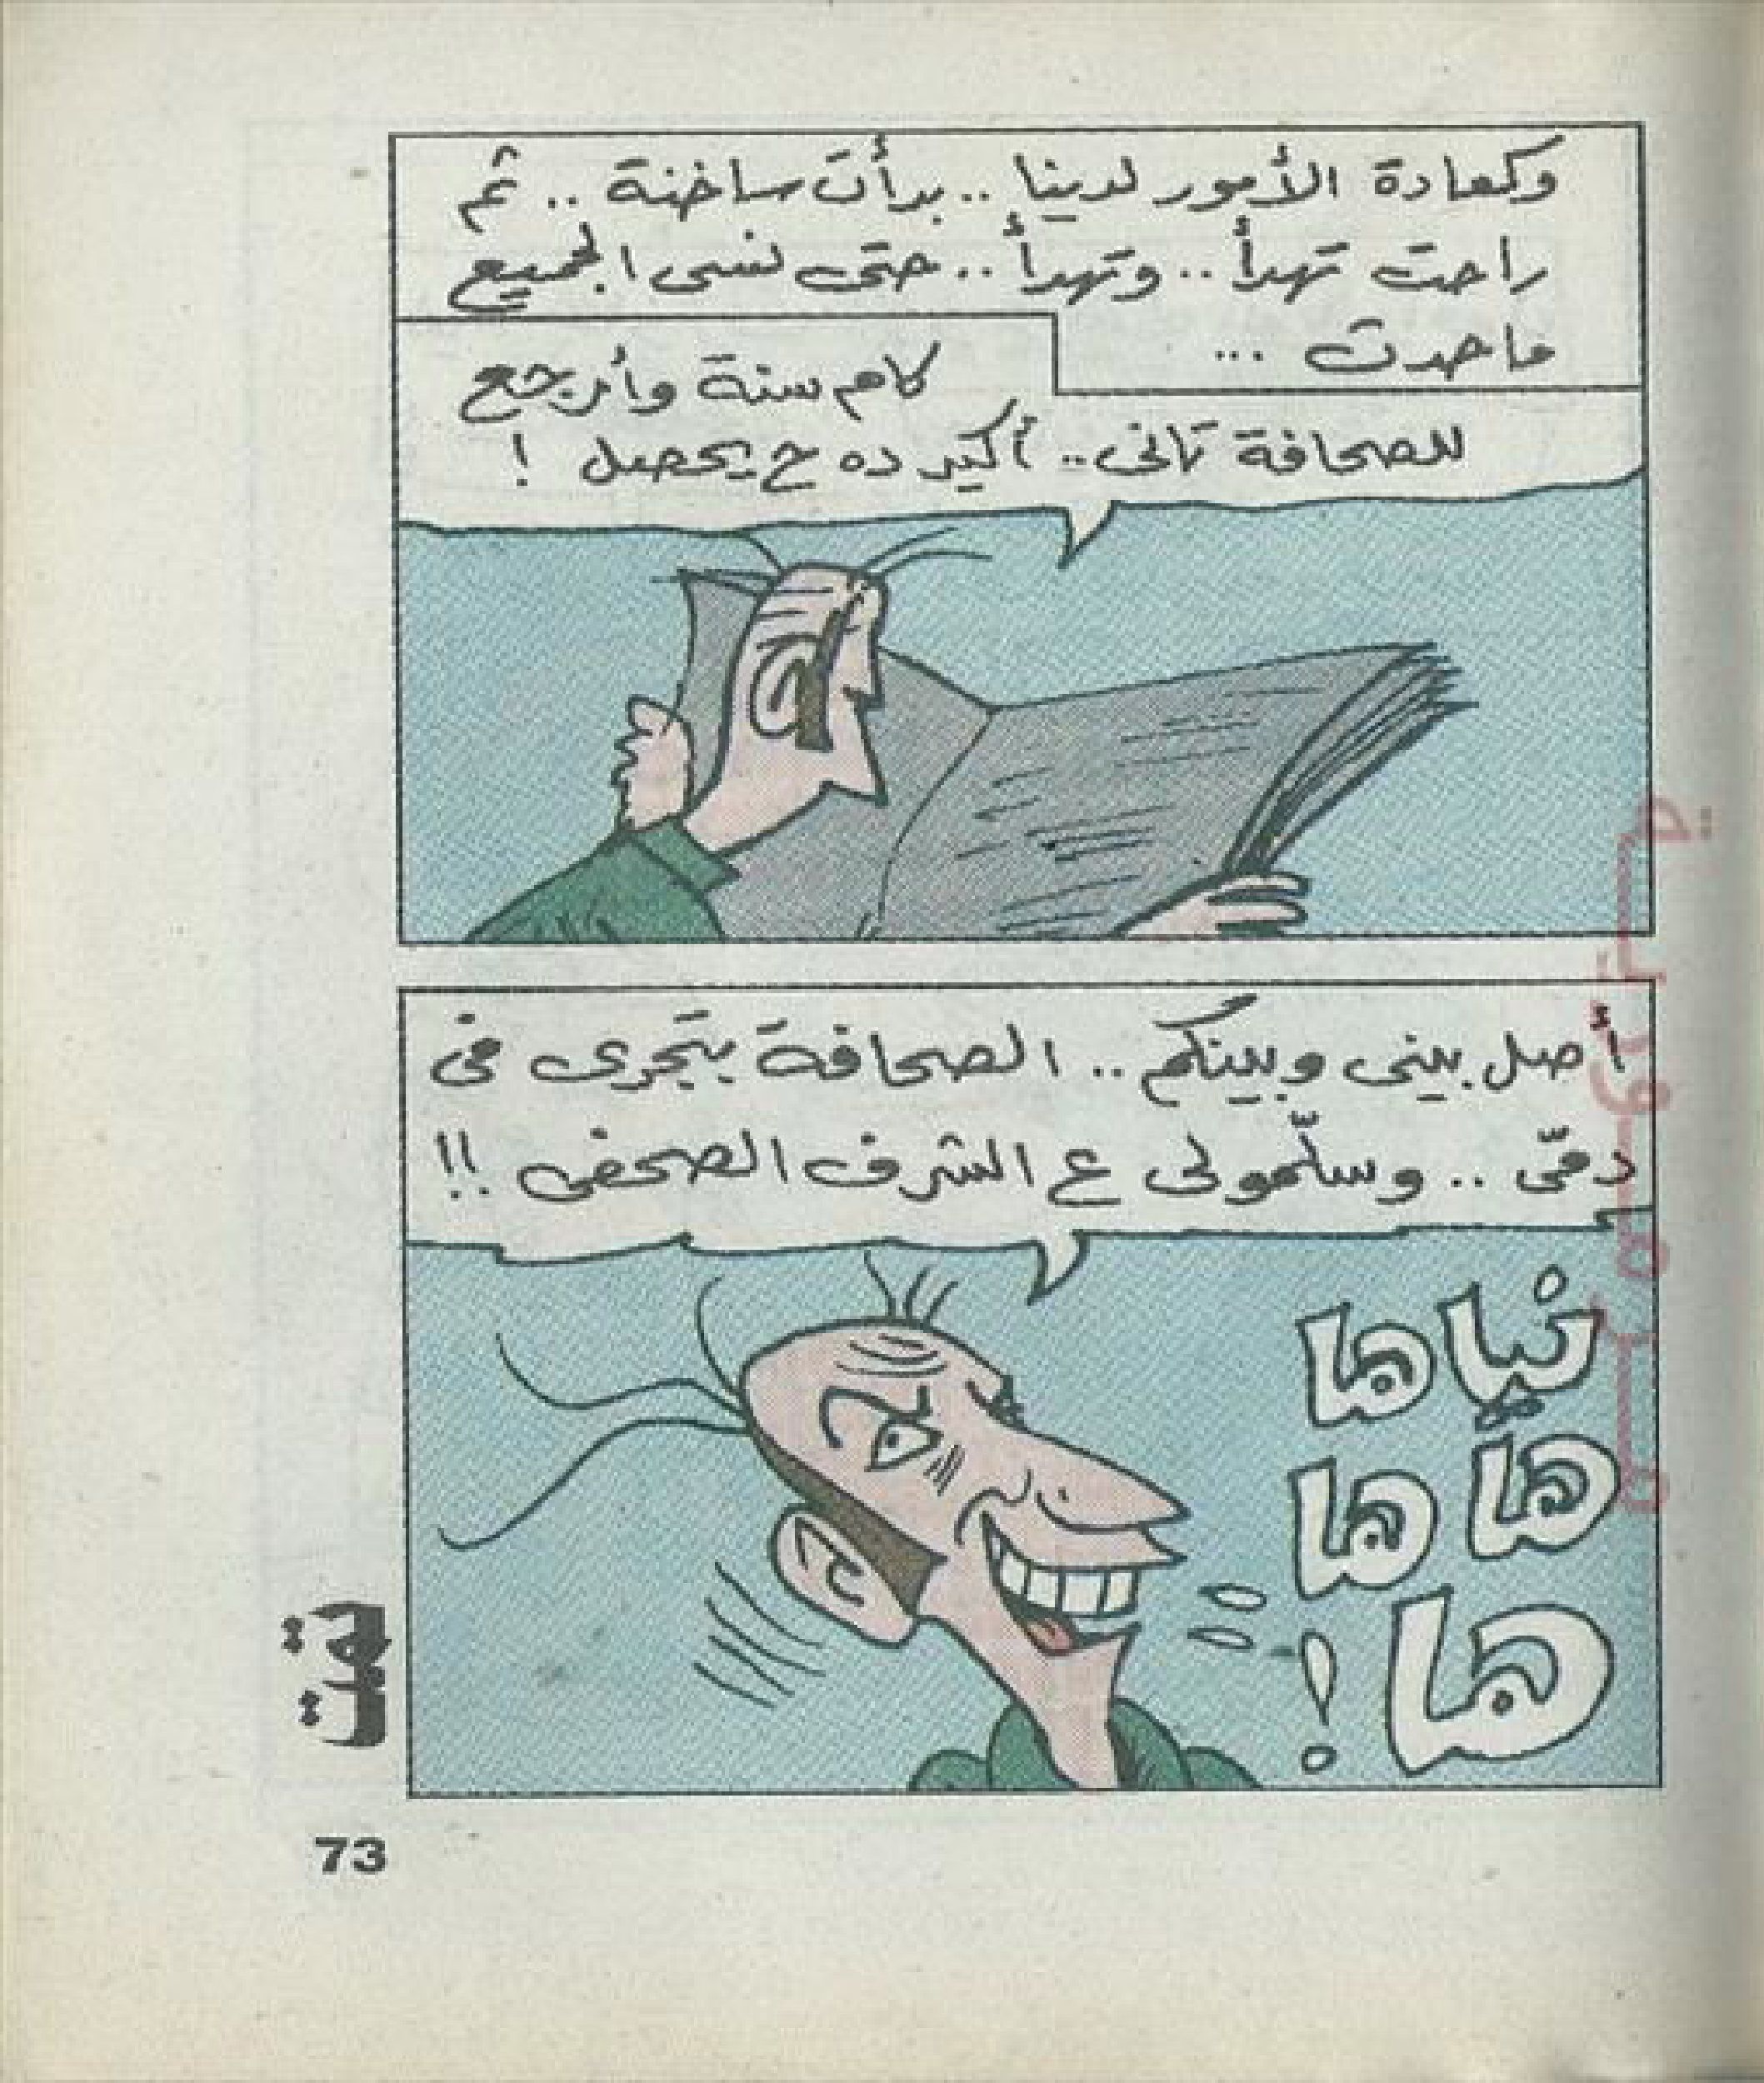 وكعادة الأمور لدينا .. بدأت ساخنة .. ثم
راحت تهدأ .. وتهدأ .. حتى نسى الجميع
ماحدث ...
كام سنة وأرجع
للصحافة تانى .. أكيد ده ح يحصل !
أصل بينى وبينكم .. الصحافة بتجرى فى
دمّى .. وسلّمولى ع الشرف الصحفى !!
نياها
ها ها
ها !
تمت
73